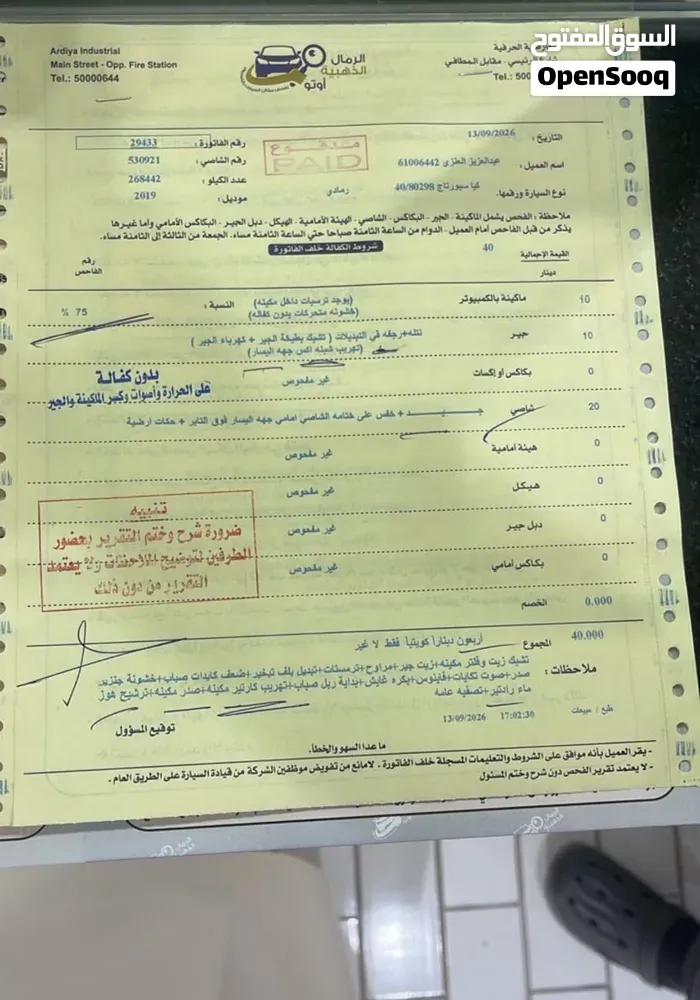 السوق المفتوح
OpenSooq
Ardiya Industrial
Main Street - Opp. Fire Station
Tel.: 50000644
الرمال
الذهبية
أوتو
الحرفية
الرئيسي - مقابل المطافي
Tel.: 500
التاريخ : 13/09/2026
مدفوع
PAID
رقم الفاتورة : 29433
اسم العميل : عبدالعزيز العنزي 61006442
رقم الشاصي : 530921
نوع السيارة ورقمها. كيا سبورتاج 40/80298 رمادي
عدد الكيلو : 268442
موديل : 2019
ملاحظة : الفحص يشمل الماكينة - الجير - البكاكس - الشاصي - الهيئة الأمامية - الهيكل - دبل الجير - البكاكس الأمامي وأما غيرها
يذكر من قبل الفاحص أمام العميل - الدوام من الساعة الثامنة صباحا حتى الساعة الثامنة مساء. الجمعة من الثالثة إلى الثامنة مساء.
شروط الكفالة خلف الفاتورة
القيمة الإجمالية 40
دينار
رقم
الفاحص
10 ماكينة بالكمبيوتر (يوجد ترسبات داخل مكينه) النسبة : 75 %
(خشونه متحركات بدون كفاله)
10 جير نتله+رجفه في التبديلات ( تشيك بطيكة الجير + كهرباء الجير )
(تهريب شبله اكس جهه اليسار)
0 بكاكس أو إكسات غير مفحوص
بدون كفالة
على الحرارة وأصوات وكسر الماكينة والجير
20 شاصي جيد + خفس على ختامه الشاصي امامي جهه اليسار فوق التاير + حكات ارضية
0 هيئة أمامية غير مفحوص
0 هيكل غير مفحوص
0 دبل جير غير مفحوص
0 بكاكس أمامي غير مفحوص
تنبيه
ضرورة شرح وختم التقرير بحضور
الطرفين لتوضيح الملاحظات ولا يعتمد
التقرير من دون ذلك
0.000 الخصم
40.000 المجموع أربعون ديناراً كويتياً فقط لا غير
ملاحظات : تشيك زيت وفلتر مكينه+زيت جير+مراوح+ترمستات+تبديل بلف تبخير+ضعف كايدات صباب+خشونة جنزير
صدر+صوت تكايات+فاينوس+بكره غايش+بداية ريل صباب+تهريب كارتير مكينه+صدر مكينه+ترشيح هوز
ماء رادتير+تصفيه عامه
طبع / مبيعات 17:02:30 13/09/2026
توقيع المسؤول
ما عدا السهو والخطأ.
- يقر العميل بأنه موافق على الشروط والتعليمات المسجلة خلف الفاتورة . لامانع من تفويض موظفين الشركة من قيادة السيارة على الطريق العام .
- لا يعتمد تقرير الفحص دون شرح وختم المسئول